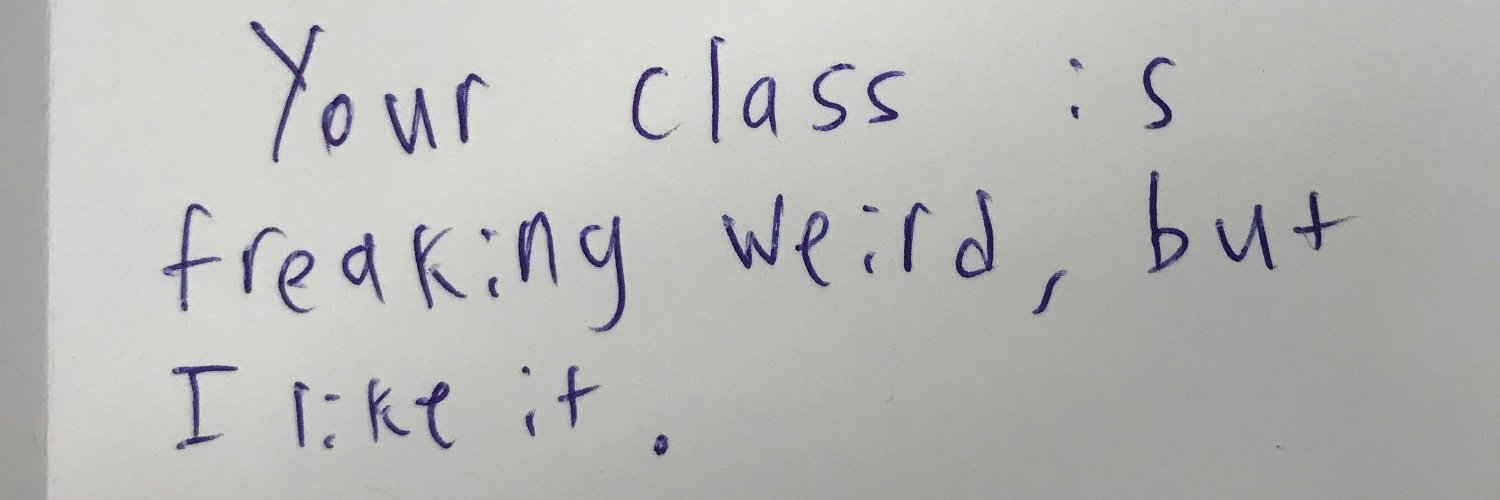 Your class is
freaking weird, but
I like it.